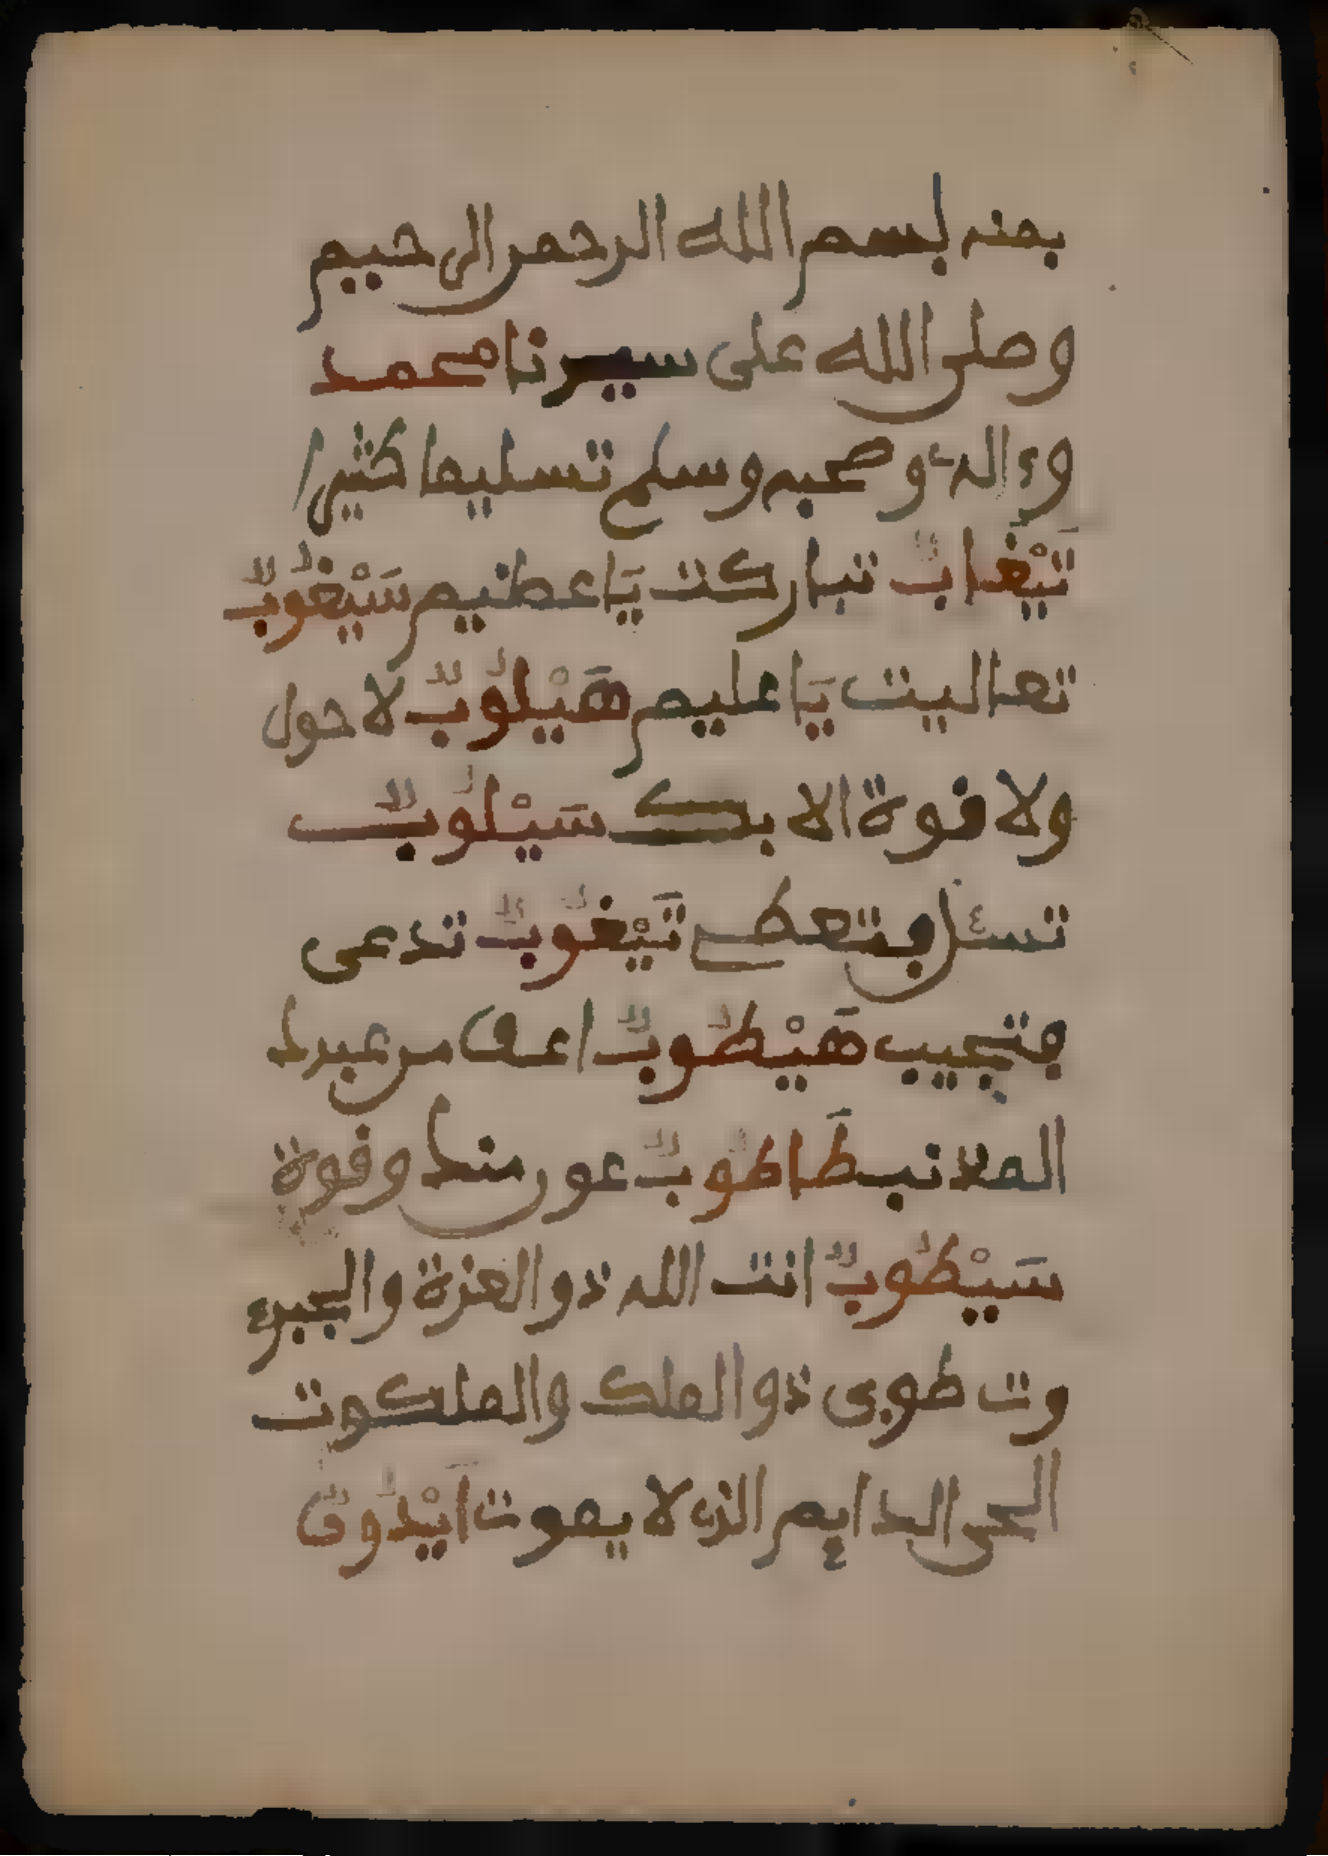 بمنه بسم الله الرحمن الرحيم
وصلى الله على سيدنا محمد
وءاله وصحبه وسلم تسليما كثيرا
تَيْغَابٌ تباركت يَا عظيم سَيْغُوبٌ
تعاليت يَا عليم هَيْلُوبٌ لا حول
ولا قوة الا بك سَيْلُوبٌ
تسئل فتعطے تَيْغُوبٌ تدعى
فتجيب هَيْطُوبٌ اعف من عبدك
المذنب طَاطُوبٌ عون منك وقوة
سَيْطُوبٌ انت الله ذو العزة والجبر
وت طوبى ذو الملك والملكوت
الحي الدايم الذي لا يموت اَيْدُوقٌ